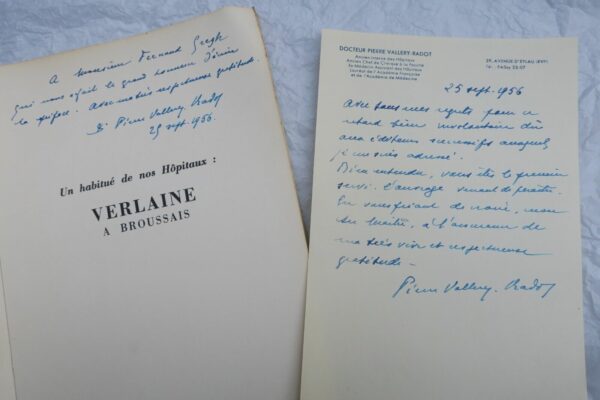 A Monsieur Fernand Gregh
qui nous a fait le grand honneur d'écrire
la préface. avec notre respectueuse gratitude.
Dr Pierre Vallery Radot
25 sept. 1956.
Un habitué de nos Hôpitaux :
VERLAINE
A BROUSSAIS
DOCTEUR PIERRE VALLERY-RADOT
Ancien Interne des Hôpitaux
Ancien Chef de Clinique à la Faculté
Ex-Médecin Assistant des Hôpitaux
Lauréat de l'Académie Française
et de l'Académie de Médecine
39, AVENUE D'EYLAU (XVIe)
25 sept. 1956
avec tous mes regrets pour ce
retard bien involontaire dû
aux éditeurs successifs auxquels
je me suis adressé.
Bien entendu, vous êtes le premier
servi. l'ouvrage venant de paraître.
En vous priant de croire, mon
cher Maître, à l'assurance de
ma très vive et respectueuse
gratitude -
Pierre Vallery-Radot